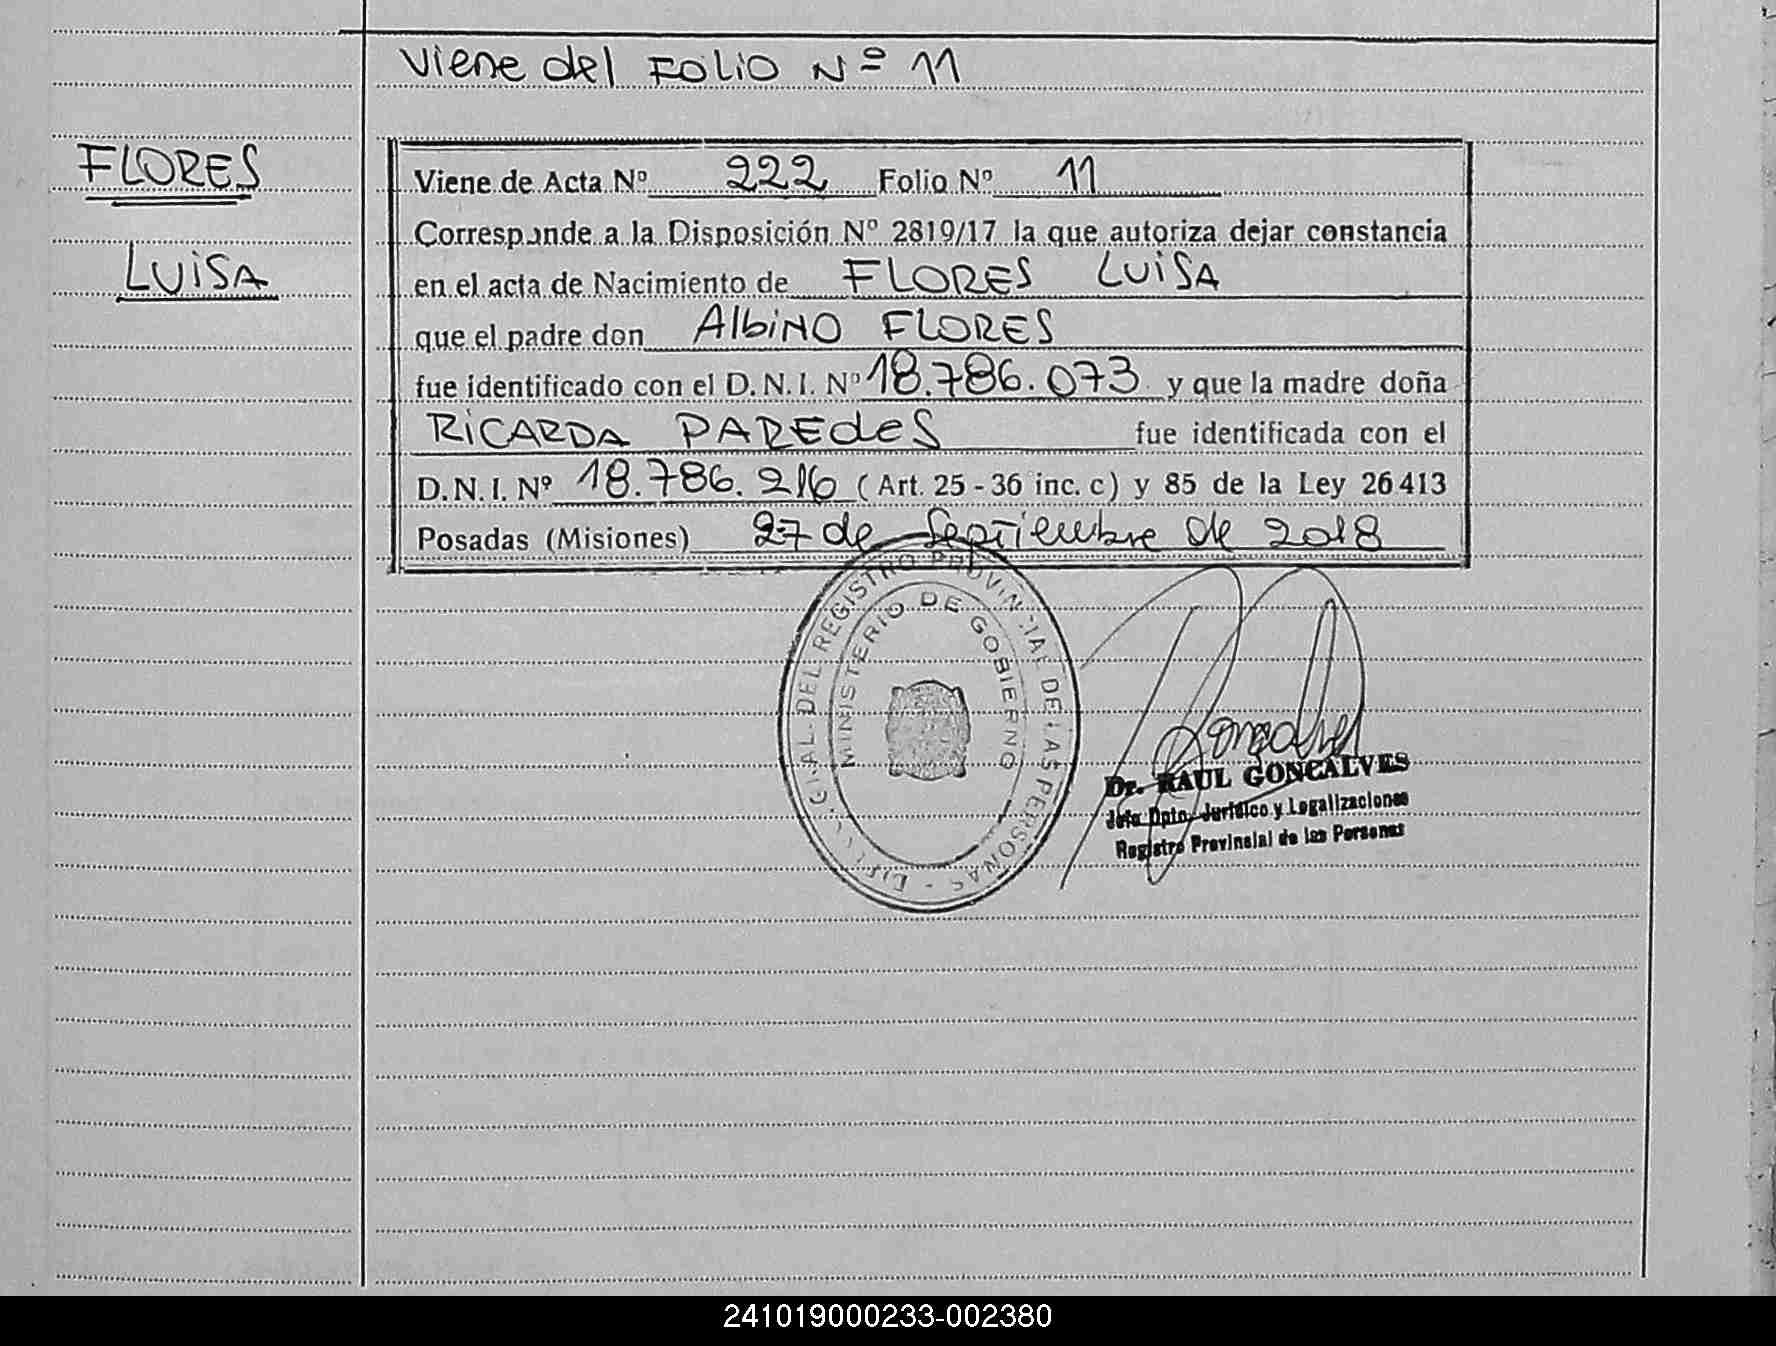 Viene del FOLIO Nº 11
FLORES
LUISA
Viene de Acta Nº 222 Folio Nº 11
Corresponde a la Disposición Nº 2819/17 la que autoriza dejar constancia
en el acta de Nacimiento de FLORES LUISA
que el padre don AlbiNO FLORES
fue identificado con el D. N. I. Nº 18.786.073 y que la madre doña
RiCARDA PAREdeS fue identificada con el
D. N. I. Nº 18.786.216 (Art. 25 - 36 inc. c) y 85 de la Ley 26413
Posadas (Misiones) 27 de Septiembre de 2018
GRAL. DEL REGISTRO PROVINCIAL DE LAS PERSONAS
MINISTERIO DE GOBIERNO
Dr. RAUL GONCALVES
Jefe Dpto. Jurídico y Legalizaciones
Registro Provincial de las Personas
241019000233-002380